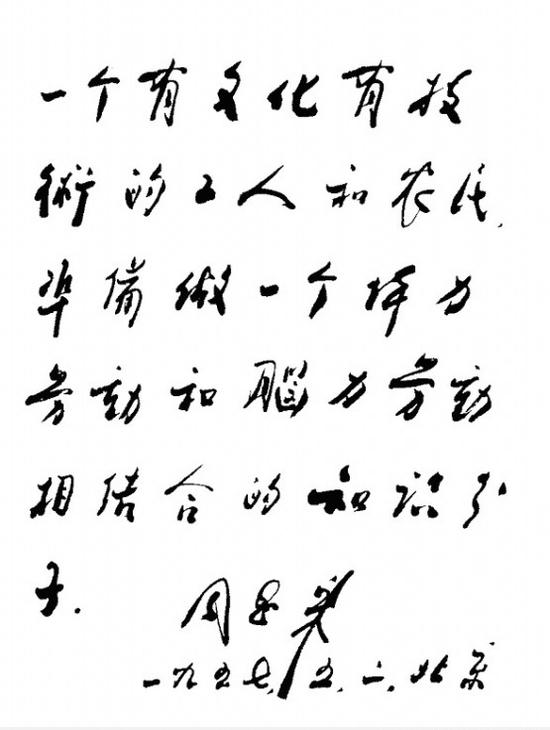 一个有文化有技
術的工人和农民,
準備做一个体力
劳動和腦力劳動
相结合的知识分
子.
周恩来
一九五七,五,一,北京